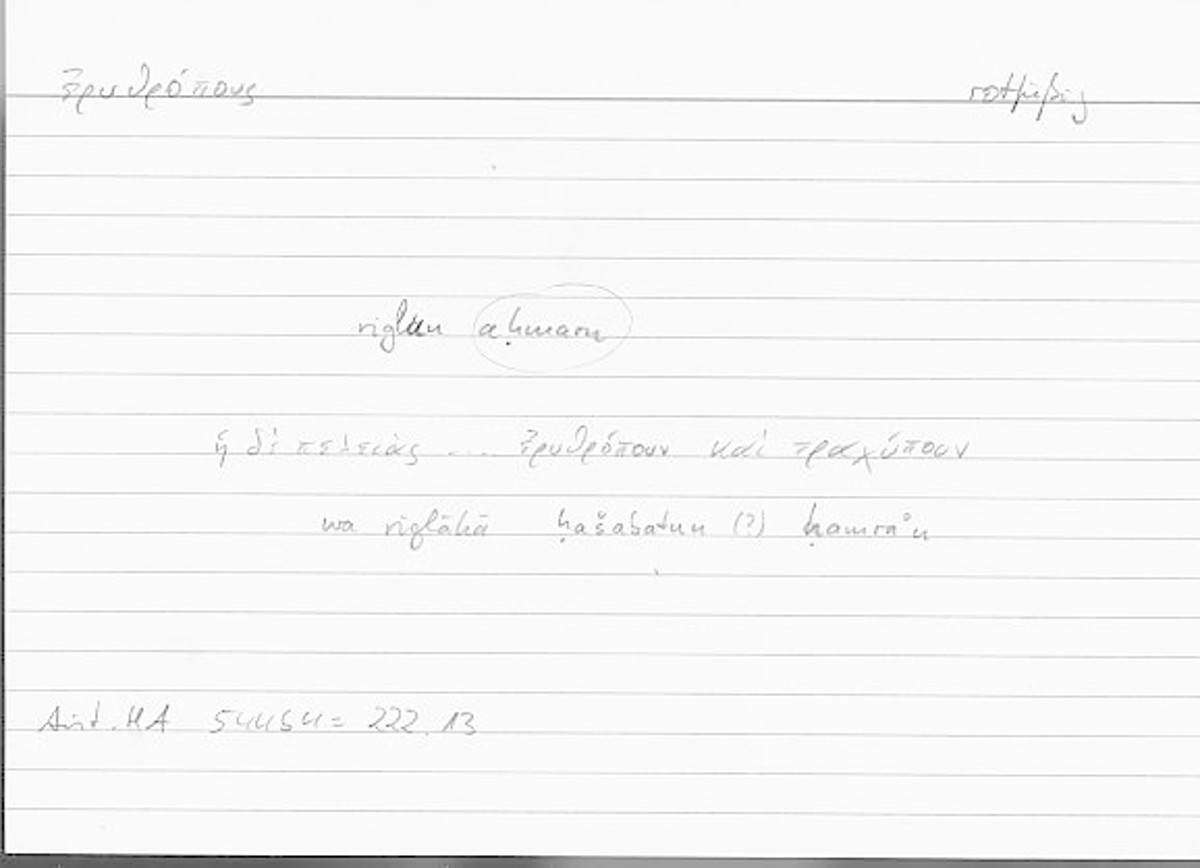 ἐρυθρόπους rotfüßig
riglun aḥmaru
ἡ δὲ πελειὰς .... ἐρυθρόπουν καὶ τραχύπουν
wa riglāhā ḫašabatun (?) ḥamrāʾu
Arist. HA 544b4 = 222.13